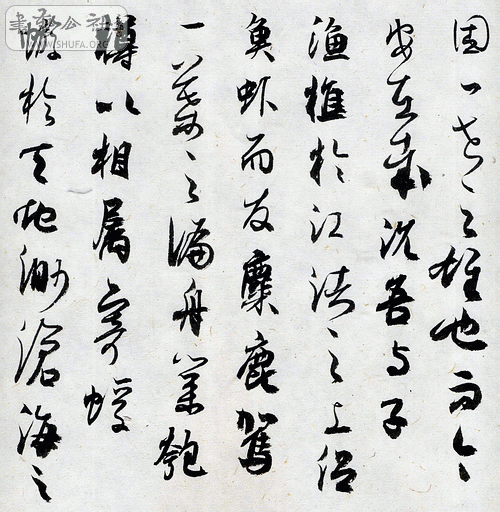 固一世之雄也而今
安在哉況吾与子
漁樵於江渚之上侶
魚虾而友麋鹿駕
一葉之扁舟舉匏
樽以相屬寄蜉
蝣於天地渺滄海之
WWW.SHUFA.ORG